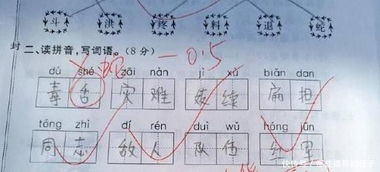 斗 洪 疼 料 退 蛇
封 二、读拼音,写词语。(8 分) 蛇 -0.5
dú shé zāi nàn jì xù biǎn dan
毒舌 灾难 续 扁担
tóng zhì dí rén duì wǔ hóng jūn
同志 敌人 队伍 红军